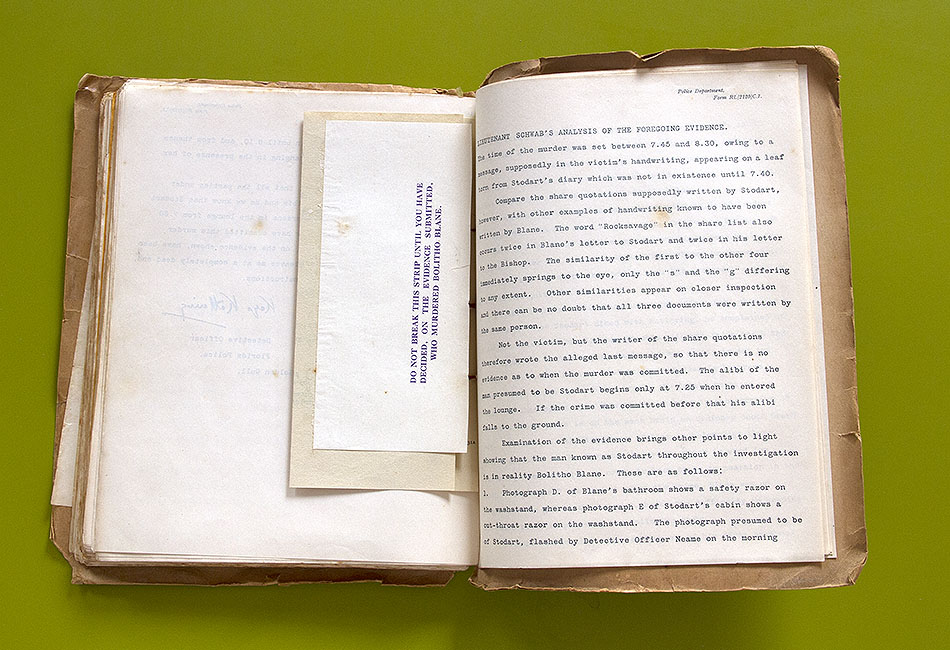 DO NOT BREAK THIS STRIP UNTIL YOU HAVE
DECIDED, ON THE EVIDENCE SUBMITTED,
WHO MURDERED BOLITHO BLANE.
Police Department.
Form RL/2120/C.7.
LIEUTENANT SCHWAB'S ANALYSIS OF THE FOREGOING EVIDENCE.
The time of the murder was set between 7.45 and 8.30, owing to a
message, supposedly in the victim's handwriting, appearing on a leaf
torn from Stodart's diary which was not in existence until 7.40.
Compare the share quotations supposedly written by Stodart,
however, with other examples of handwriting known to have been
written by Blane. The word "Rocksavage" in the share list also
occurs twice in Blane's letter to Stodart and twice in his letter
to the Bishop. The similarity of the first to the other four
immediately springs to the eye, only the "s" and the "g" differing
to any extent. Other similarities appear on closer inspection
and there can be no doubt that all three documents were written by
the same person.
Not the victim, but the writer of the share quotations
therefore wrote the alleged last message, so that there is no
evidence as to when the murder was committed. The alibi of the
man presumed to be Stodart begins only at 7.25 when he entered
the lounge. If the crime was committed before that his alibi
falls to the ground.
Examination of the evidence brings other points to light
showing that the man known as Stodart throughout the investigation
is in reality Bolitho Blane. These are as follows:
1. Photograph D. of Blane's bathroom shows a safety razor on
the washstand, whereas photograph E of Stodart's cabin shows a
cut-throat razor on the washstand. The photograph presumed to be
of Stodart, flashed by Detective Officer Neame on the morning